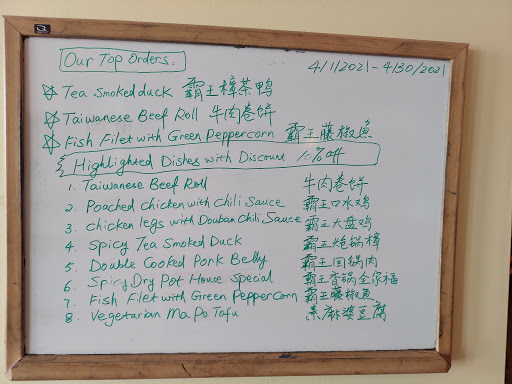 Our Top Orders:
4/1/2021 - 4/30/2021
☆ Tea Smoked duck 霸王樟茶鸭
☆ Taiwanese Beef Roll 牛肉卷饼
☆ Fish Filet with Green Peppercorn 霸王藤椒魚
Highlighted Dishes with Discount 10% off
1. Taiwanese Beef Roll 牛肉卷饼
2. Poached chicken with Chili Sauce 霸王口水鸡
3. chicken legs with Douban Chili Sauce 霸王大盘鸡
4. Spicy Tea Smoked Duck 霸王炝锅樟
5. Double Cooked Pork Belly 霸王回锅肉
6. Spicy Dry Pot House Special 霸王香锅全家福
7. Fish Filet with Green Peppercorn 霸王藤椒魚
8. Vegetarian Ma Po Tofu 素麻婆豆腐